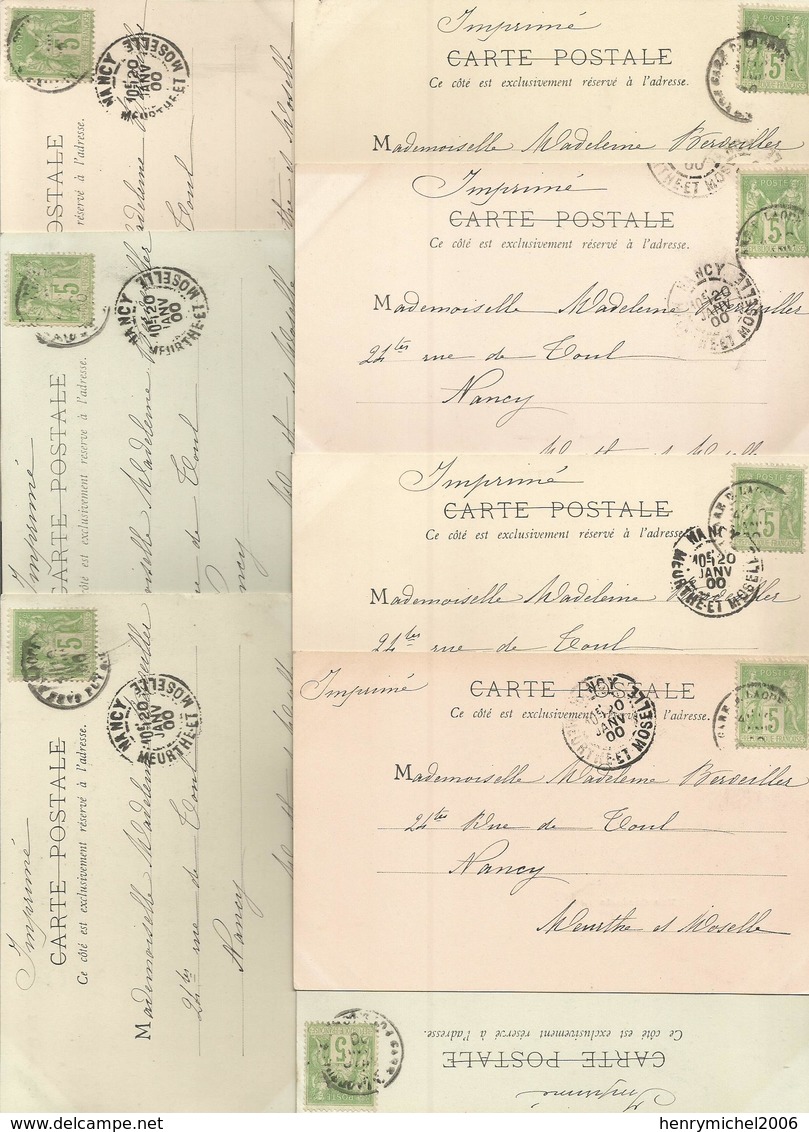 5
NANCY
10E/20
JANV
00
MEURTHE-ET-MOSELLE
POSTALE
réservé à l'adresse.
Madeleine
Toul
5
NANCY
10E/20
JANV
00
MEURTHE-ET-MOSELLE
Imprimé
CARTE POSTALE
Ce côté est exclusivement réservé à l'adresse.
Mademoiselle Madeleine
rue de Toul
Nancy
5
NANCY
10E/20
JANV
00
MEURTHE-ET-MOSELLE
Imprimé
CARTE POSTALE
Ce côté est exclusivement réservé à l'adresse.
Mademoiselle Madeleine
24 ter rue de Toul
Nancy
Imprimé
CARTE POSTALE
Ce côté est exclusivement réservé à l'adresse.
5
Mademoiselle Madeleine Berveiller
Imprimé
CARTE POSTALE
Ce côté est exclusivement réservé à l'adresse.
5
NANCY
10E/20
JANV
00
Mademoiselle Madeleine Berveiller
24 ter rue de Toul
Nancy
Imprimé
CARTE POSTALE
Ce côté est exclusivement réservé à l'adresse.
5
NANCY
10E/20
JANV
00
MEURTHE-ET-MOSELLE
Mademoiselle Madeleine Berveiller
24 ter rue de Toul
Imprimé
CARTE POSTALE
Ce côté est exclusivement réservé à l'adresse.
5
NANCY
10E/20
JANV
00
MEURTHE-ET-MOSELLE
Mademoiselle Madeleine Berveiller
24 ter Rue de Toul
Nancy
Meurthe et Moselle
5
Imprimé
CARTE POSTALE
Ce côté est exclusivement réservé à l'adresse.
henrymichel2006